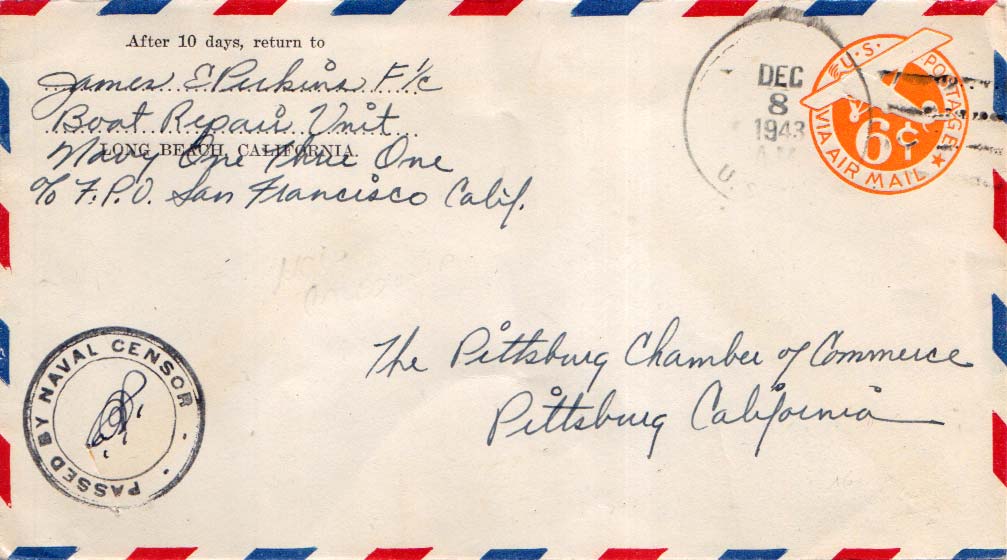 After 10 days, return to
James E Perkins F 1/c
Boat Repair Unit
LONG BEACH, CALIFORNIA
Navy One Three One
c/o F.P.O. San Francisco Calif.
DEC
8
1943
A.M.
U.S.
U.S. POSTAGE
6¢
VIA AIR MAIL
The Pittsburg Chamber of Commerce
Pittsburg California
PASSED BY NAVAL CENSOR